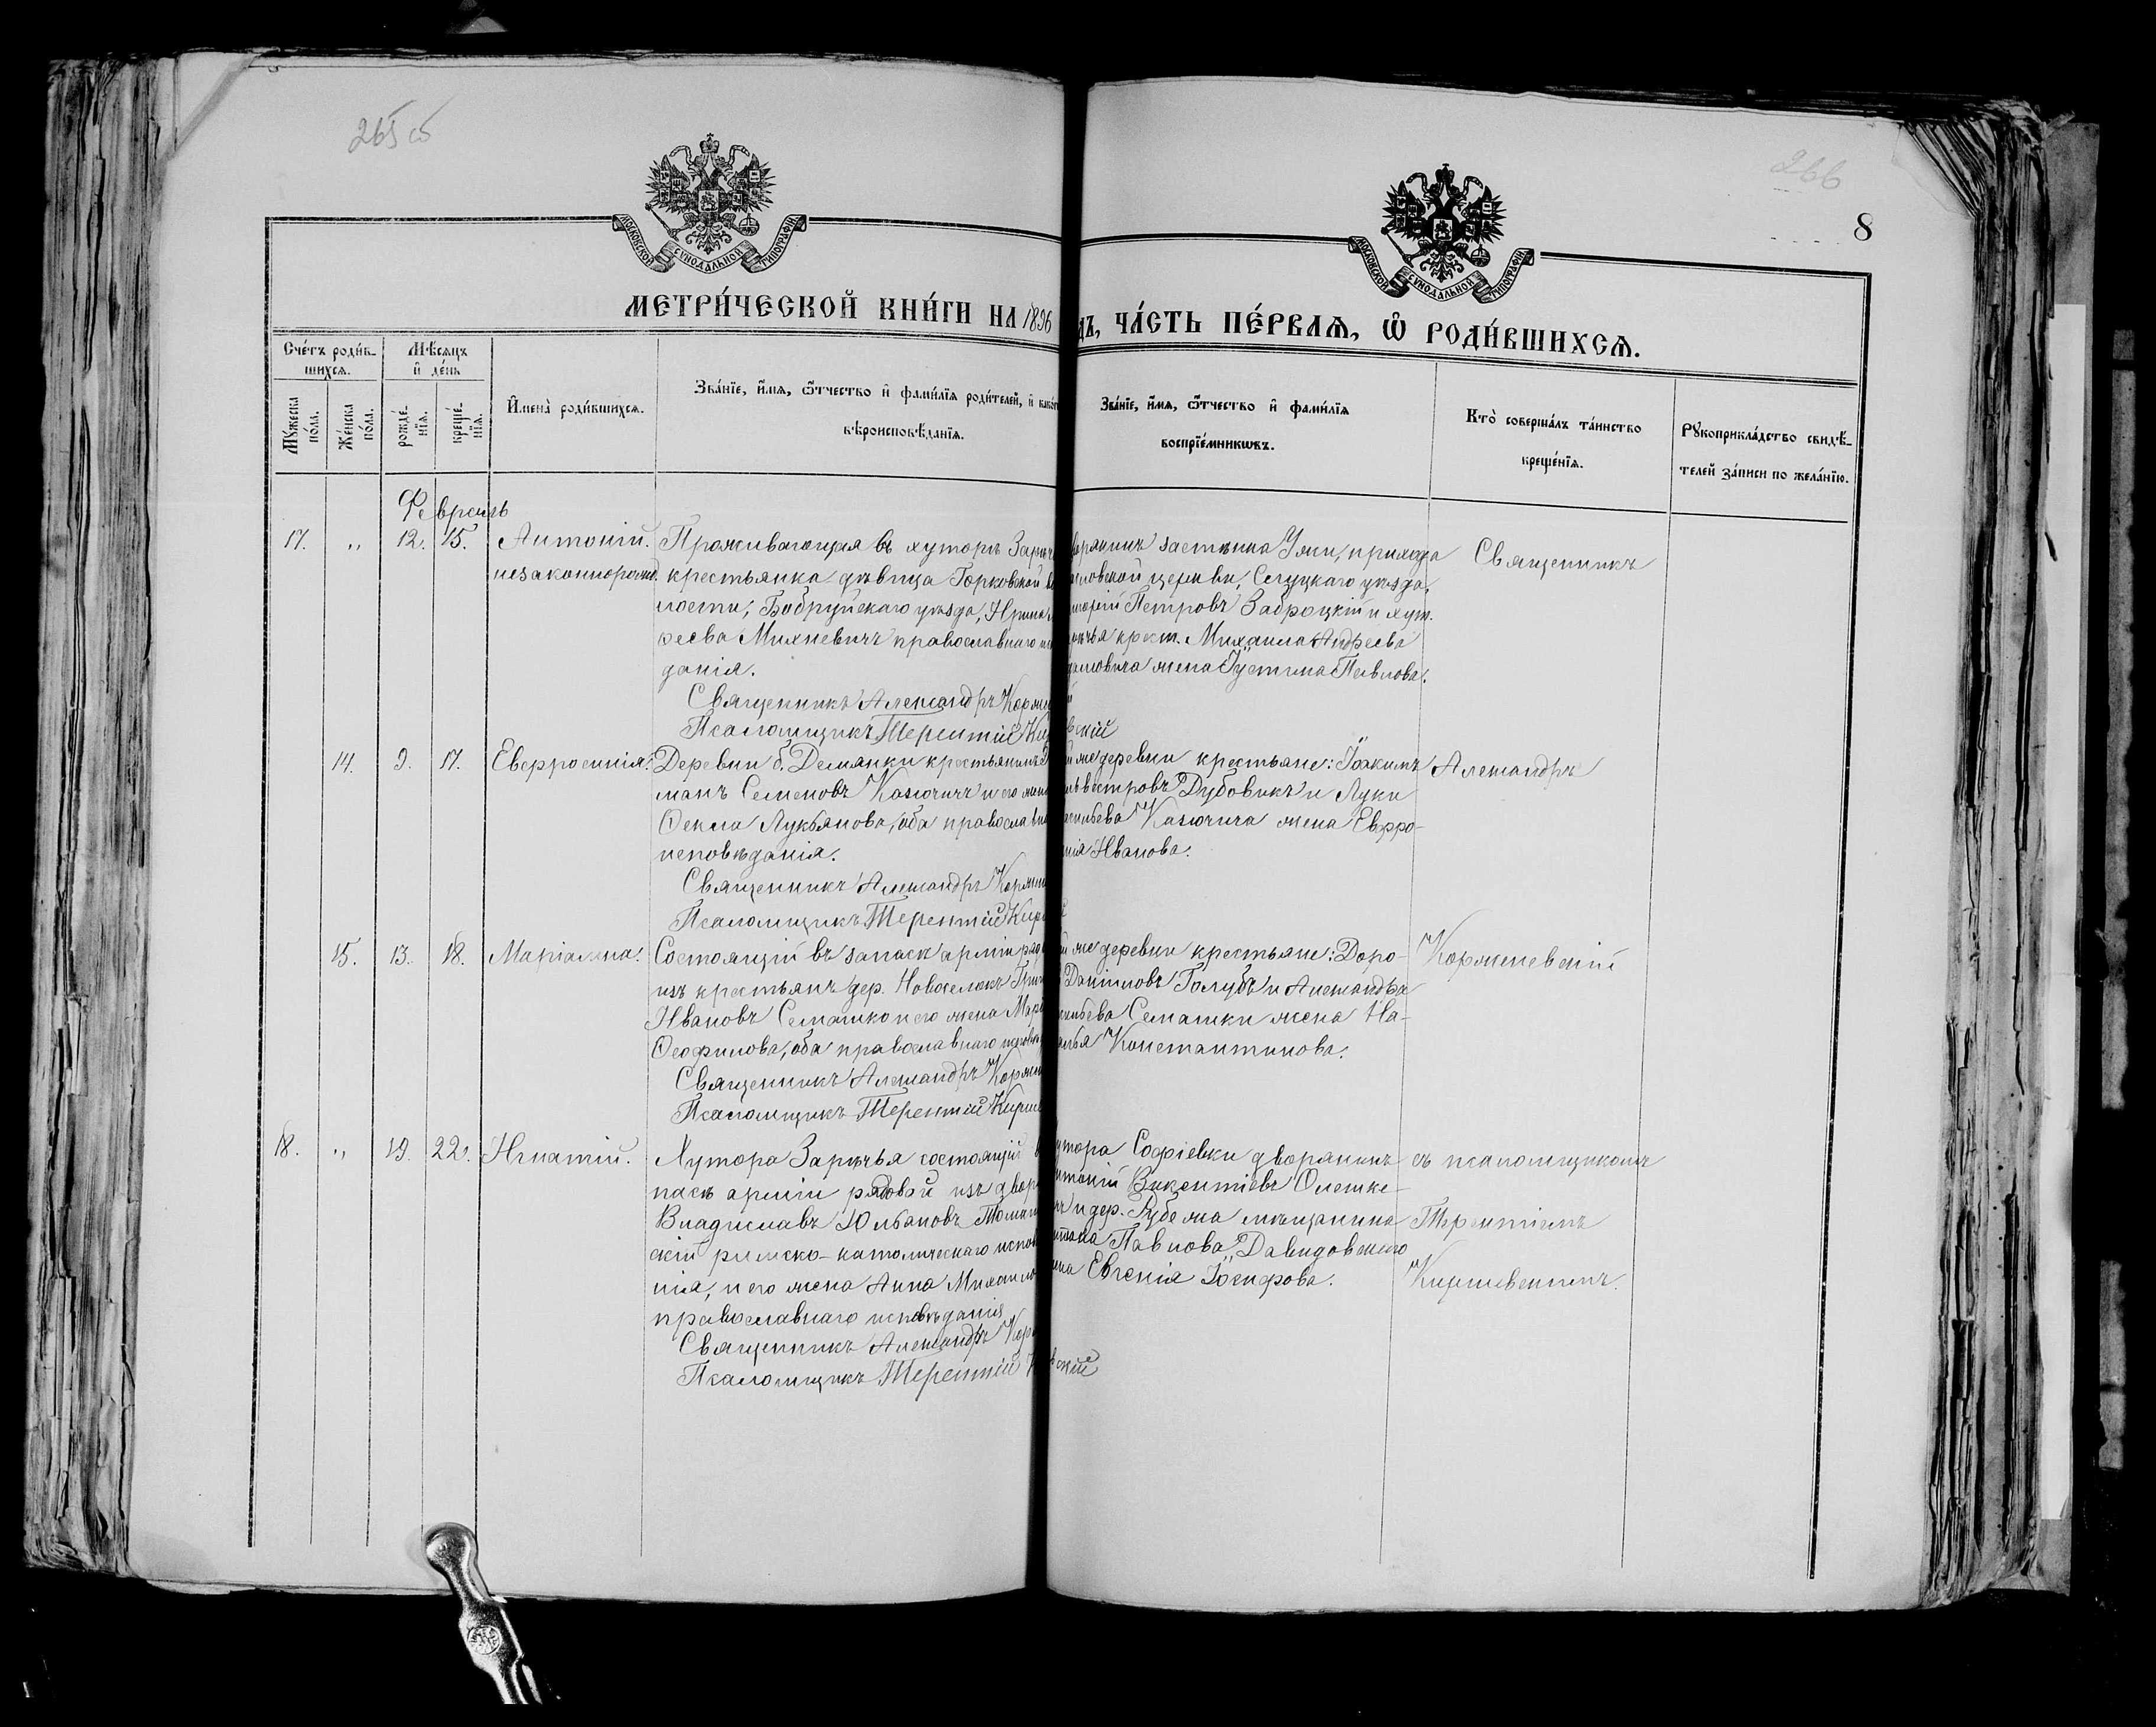 265 об
266
8
МОСКОВСКОЙ СѴНОДАЛЬНОЙ ТИПОГРАФІИ
МОСКОВСКОЙ СѴНОДАЛЬНОЙ ТИПОГРАФІИ
МЕТРИ́ЧЕСКОЙ КНИ́ГИ НА 1896
дъ, ЧА́СТЬ ПЕ́РВАѦ, Ѽ РОДИ́ВШИХСѦ.
Сче́тъ роди́в-
шихся.
Мѣ́сяцъ
и҆ де́нь
Мꙋ́жеска
по́ла.
Же́нска
по́ла.
рожде́-
нїя.
креще́-
нїя.
И҆мена̀ роди́вшихся.
Зва́нїе, и҆́мѧ, ѻ҆́тчество и҆ фами́лїѧ роди́телей, и҆
вѣроисповѣ́данїѧ.
Зва́нїе, и҆́мѧ, ѻ҆́тчество и҆ фами́лїѧ
воспрїе́мникѡвъ.
Кто̀ соверша́лъ та́инство
креще́нїѧ.
Рꙋкоприкла́дство свидѣ́-
телей за́писи по жела́нїю.
Февраль
17. „ 12. 15. Антоній.
незаконнорожд.
Проживающая въ хуторѣ Зарѣч
крестьянка дѣвица Горковской во
лости, Бобруйскаго уѣзда,
Михневичъ православнаго
данія.
Священникъ Александръ Корже
Псаломщикъ Терентій Ки
ворянинъ застѣнка Ужи, прихода
ловской церкви, Слуцкаго уѣзда,
Петровъ Заброцкій и хут.
рѣчья крест. Михаила Андреева
жена Іустина Павлова.
й
вскій
Священникъ
14. 9. 17. Евфросинія.
Деревни б. Демянки крестьянинъ
манъ Семеновъ Казючичъ и его жена
Ѳекла Лукьянова, оба православн
исповѣданія.
Священникъ Александръ Корже
Псаломщикъ Терентій Кир
й же деревни крестьяне: Іоакимъ
львестровъ Дубовикъ и Луки
сильева Казючича жена Евфро-
нія Иванова.
Александръ
15. 13. 18. Маріамна.
Состоящій въ запасѣ арміи ряд
изъ крестьянъ дер. Новоселокъ Григ
Ивановъ Семашко и его жена Мар
Ѳеофилова, оба православнаго исповѣд
Священникъ Александръ Корже
Псаломщикъ Терентій Кирш
й же деревни крестьяне: Доро-
Даніиловъ Голубъ и Александра
сильева Семашки жена На-
алья Константинова.
Корженевскій
18. „ 19. 22. Игнатій.
Хутора Зарѣчья состоящій в
пасѣ арміи рядовой изъ двор
Владиславъ Юльановъ Тома
скій римско-католическаго испов
нія, и его жена Анна Михаило
православнаго исповѣданія
Священникъ Александръ Кор
Псаломщикъ Терентій К
утора Софіевки дворянинъ
нтоній Викентіевъ Олешке-
чъ и дер. мѣщанина
Павлова Давидовскаго
ена Евгенія Іосифова.
вскій
съ псаломщикомъ
Терентіемъ
Киршевскимъ.